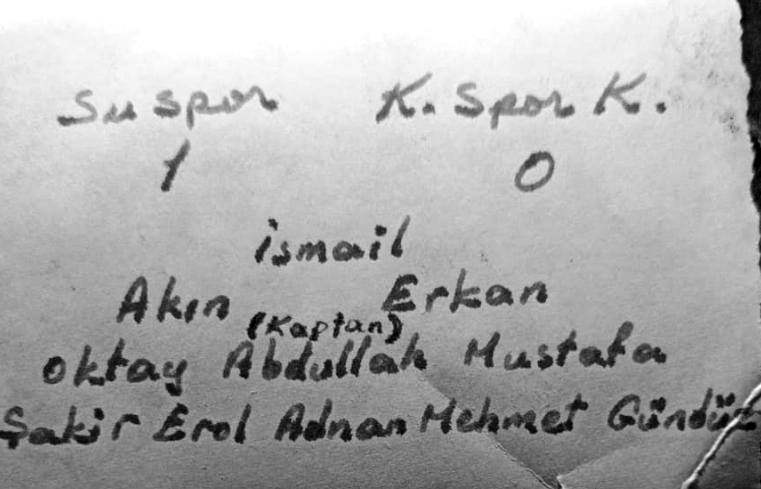 Su spor K. Spor K.
1 0
ismail
Akın Erkan
(Kaptan)
Oktay Abdullah Mustafa
Şakir Erol Adnan Mehmet Gündüz